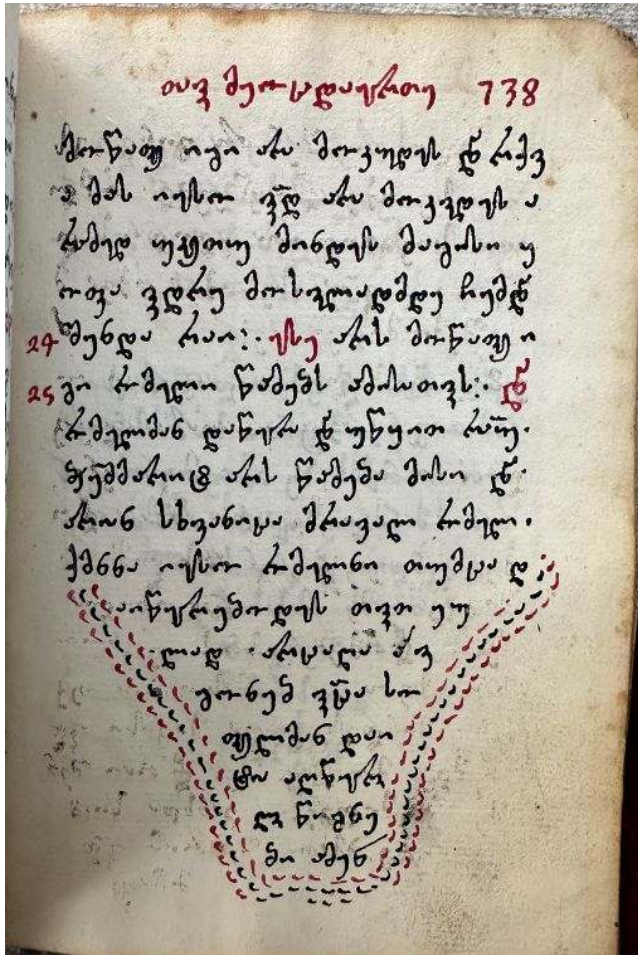 თავ მეოცდაერთი 738
მოწაფე იგი არა მოკუდეს დ~ არქვ
ა მას იესო ვ~დ არა მოკვდეს ა
რამედ უკეთუ მინდეს მაგისი ყ
ოფა ვდრე მოსვლადმდე ჩემდ
24 შენდა რაი:· ესე არის მოწაფე ი
25 გი რმელი წამებს ამისთვს:· დ~
რმელმან დაწერა დ~ უწყით რამ~·
ჭეშმარიტ არის წამება მისი დ~·
არიან სხვანიცა მრავალი რმელი·
ქმნნა იესო რმელნი თუმცა დ
აიწერებოდეს თვთ ეუ
ლად · არცაღა
გონებ ვ~ცა სო
ფელმან დაი
ტია აღწერი
ლი წიგნე
ბი ამენ